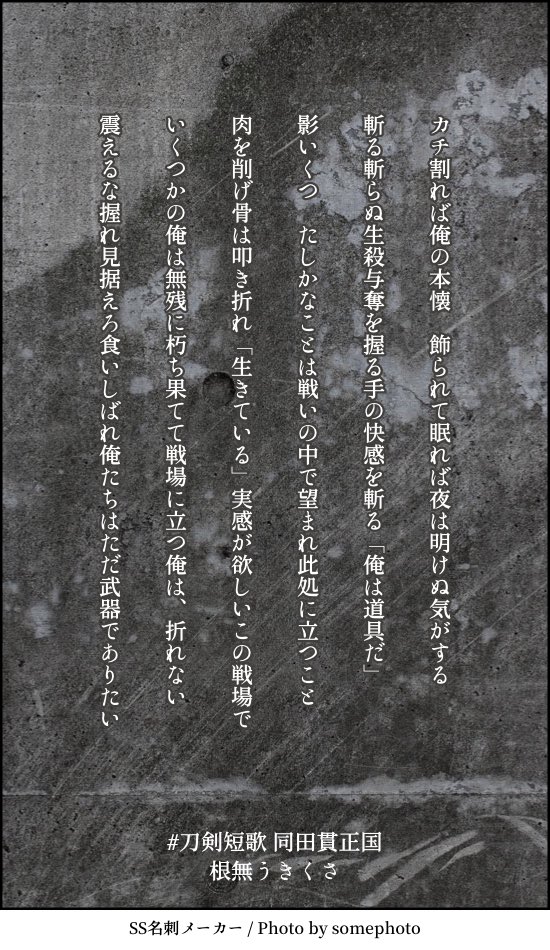 カチ割れば俺の本懐　飾られて眠れば夜は明けぬ気がする
斬る斬らぬ生殺与奪を握る手の快感を斬る「俺は道具だ」
影いくつ　たしかなことは戦いの中で望まれ此処に立つこと
肉を削げ骨は叩き折れ「生きている」実感が欲しいこの戦場で
いくつかの俺は無残に朽ち果てて戦場に立つ俺は、折れない
震えるな握れ見据えろ食いしばれ俺たちはただ武器でありたい
#刀剣短歌 同田貫正国
根無うきくさ
SS名刺メーカー / Photo by somephoto